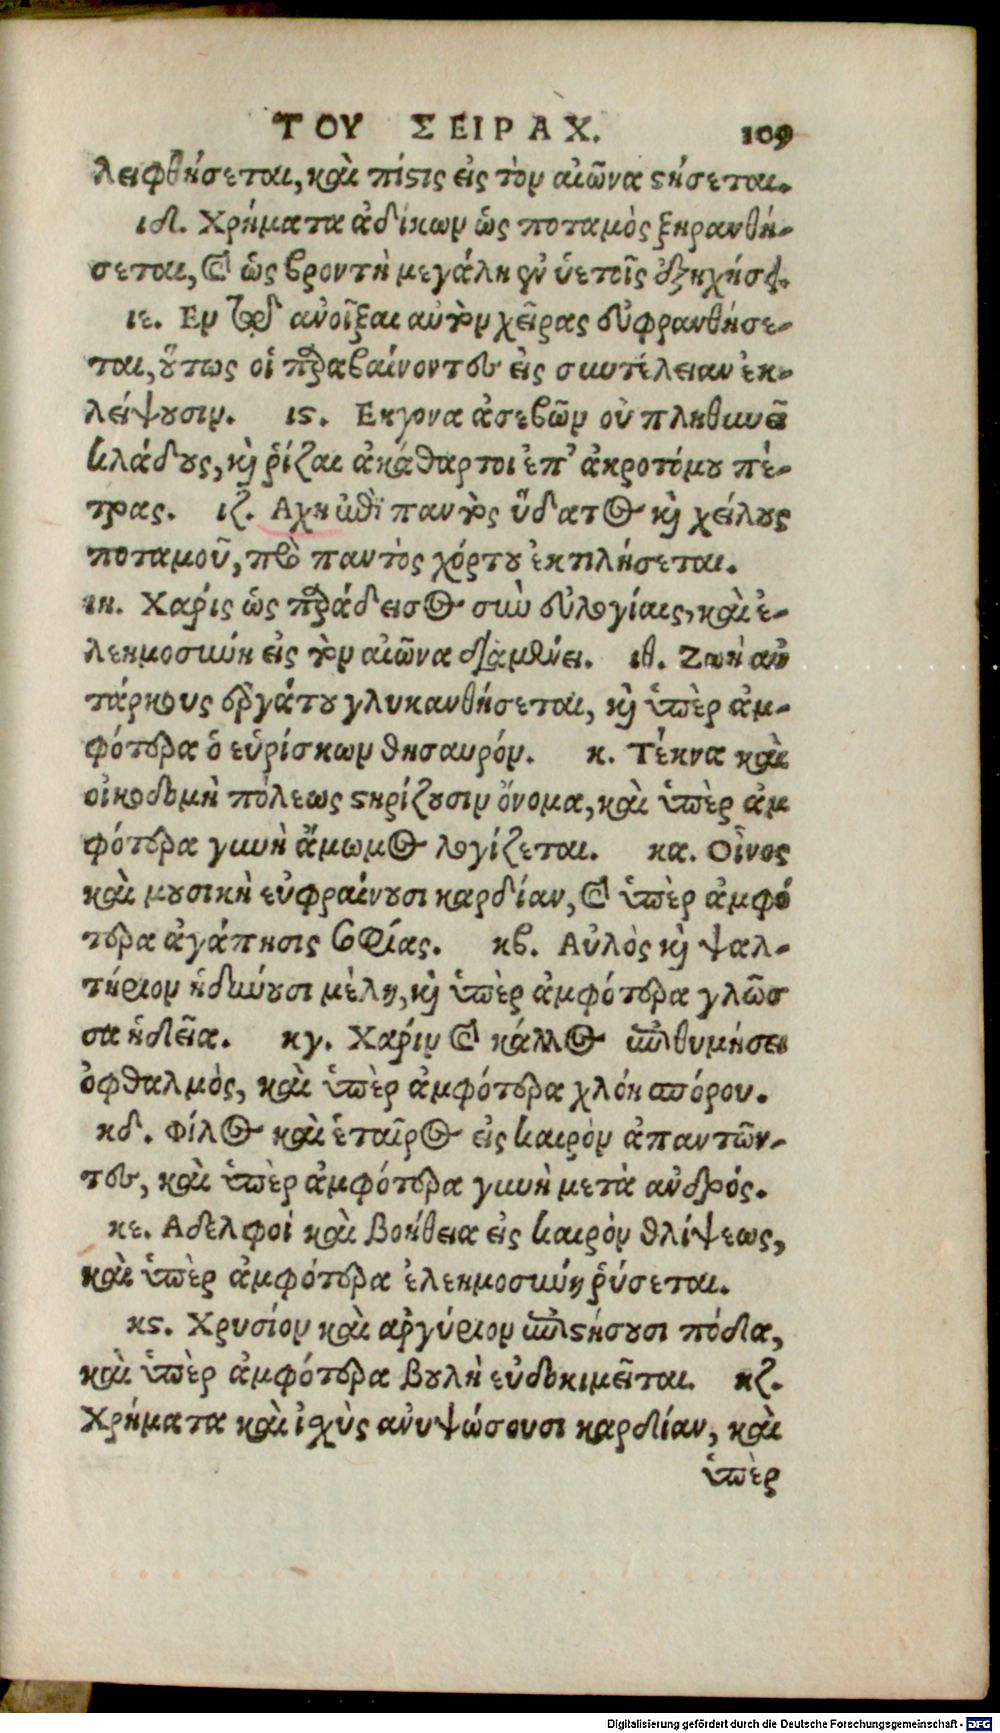 ΤΟΥ ΣΕΙΡΑΧ. 109
λειφθήσεται, καὶ πίστις εἰς τὸν αἰῶνα στήσεται.
ιδ. Χρήματα ἀδίκων ὡς ποταμὸς ξηρανθή-
σεται, καὶ ὡς βροντὴ μεγάλη ἐν ὑετοῖς ἐξηχήσει.
ιε. Εν τῷ ἀνοῖξαι αὐτὸν χεῖρας εὐφρανθήσε-
ται, οὕτως οἱ παραβαίνοντες εἰς συντέλειαν ἐκ-
λείψουσιν. ιϛ. Εκγονα ἀσεβῶν οὐ πληθυνεῖ
κλάδους, καὶ ῥίζαι ἀκάθαρτοι ἐπ' ἀκροτόμου πέ-
τρας. ιζ. Αχη ὠθὶ παντὸς ὕδατος καὶ χείλους
ποταμοῦ, πρὸ παντὸς χόρτου ἐκτιλήσεται.
ιη. Χαρίς ὡς παράδεισος σὺν εὐλογίαις, καὶ ἐ-
λεημοσύνη εἰς τὸν αἰῶνα διαμένει. ιθ. Ζωὴ αὐ
τάρκους ἐργάτου γλυκανθήσεται, καὶ ὑπὲρ ἀμ-
φότερα ὁ εὑρίσκων θησαυρόν. κ. Τέκνα καὶ
οἰκοδομὴ πόλεως στηρίζουσιν ὄνομα, καὶ ὑπὲρ ἀμ
φότερα γυνὴ ἄμωμος λογίζεται. κα. Οἶνος
καὶ μουσικὴ εὐφραίνουσι καρδίαν, καὶ ὑπὲρ ἀμφό
τερα ἀγάπησις σοφίας. κβ. Αὐλὸς καὶ ψαλ-
τήριον ἡδύνουσι μέλη, καὶ ὑπὲρ ἀμφότερα γλῶσ
σα ἡδεῖα. κγ. Χαρίν καὶ κάλλος ἐπιθυμήσει
ὀφθαλμὸς, καὶ ὑπὲρ ἀμφότερα χλόη σπόρου.
κδ. Φίλος καὶ ἑταῖρος εἰς καιρὸν ἀπαντῶν-
τες, καὶ ὑπὲρ ἀμφότερα γυνὴ μετὰ ἀνδρός.
κε. Αδελφοὶ καὶ βοήθεια εἰς καιρὸν θλίψεως,
καὶ ὑπὲρ ἀμφότερα ἐλεημοσύνη ῥύσεται.
κϛ. Χρυσίον καὶ ἀργύριον ἐπιστήσουσι πόδα,
καὶ ὑπὲρ ἀμφότερα βουλὴ εὐδοκιμεῖται. κζ.
Χρήματα καὶ ἰσχὺς ἀνυψώσουσι καρδίαν, καὶ
ὑπὲρ
Digitalisierung gefördert durch die Deutsche Forschungsgemeinschaft - DFG